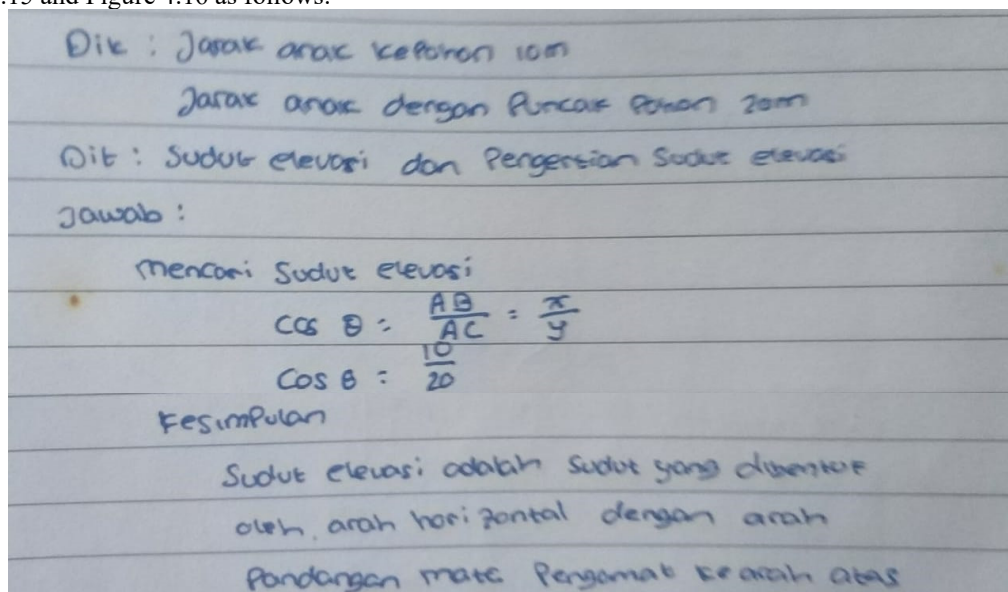 .15 and Figure 4.16 as follows:
Dik : Jarak anak kepohon 10m
Jarak anak dengan Puncak Pohon 20m
Dit : Sudut elevasi dan Pengertian Sudut elevasi
Jawab :
mencari Sudut elevasi
Cos θ = AB/AC = x/y
Cos θ = 10/20
Kesimpulan
Sudut elevasi adalah Sudut yang dibentuk
oleh arah horizontal dengan arah
Pandangan mata Pengamat ke arah atas